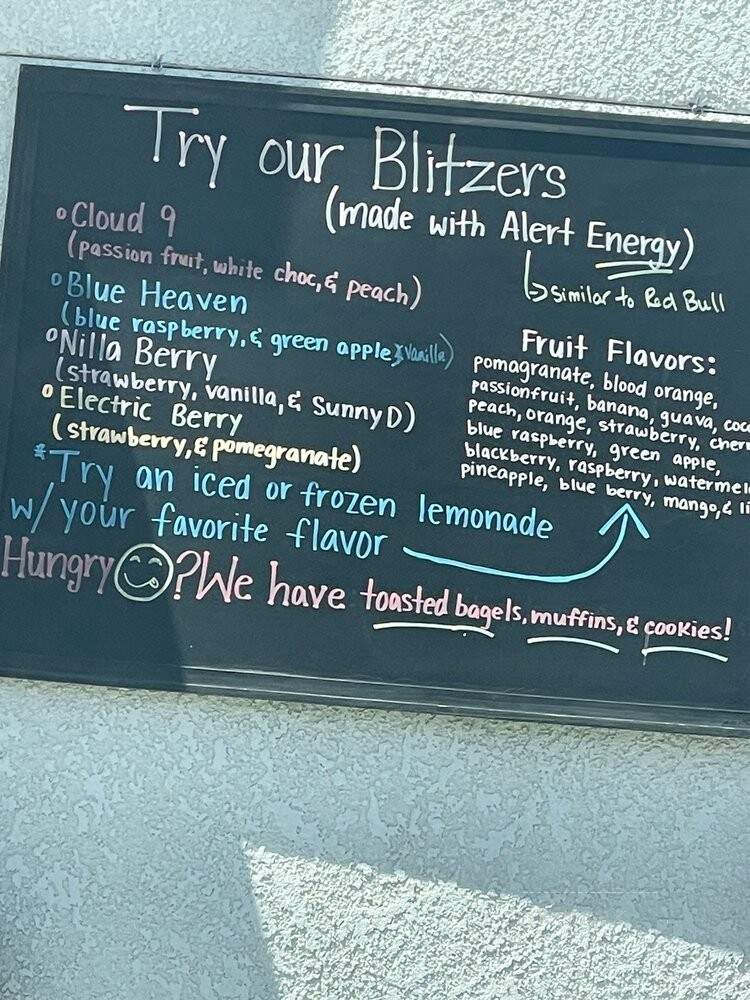 Try our Blitzers
(made with Alert Energy)
↳ similar to Red Bull
• Cloud 9
(passion fruit, white choc, & peach)
• Blue Heaven
(blue raspberry, & green apple, & vanilla)
• Nilla Berry
(strawberry, vanilla, & Sunny D)
• Electric Berry
(strawberry, & pomegranate)
Fruit Flavors:
pomagranate, blood orange,
passionfruit, banana, guava,
peach, orange, strawberry,
blue raspberry, green apple,
blackberry, raspberry,
pineapple, blue berry, mango, &
*Try an iced or frozen lemonade
w/ your favorite flavor
Hungry ? We have toasted bagels, muffins, & cookies!